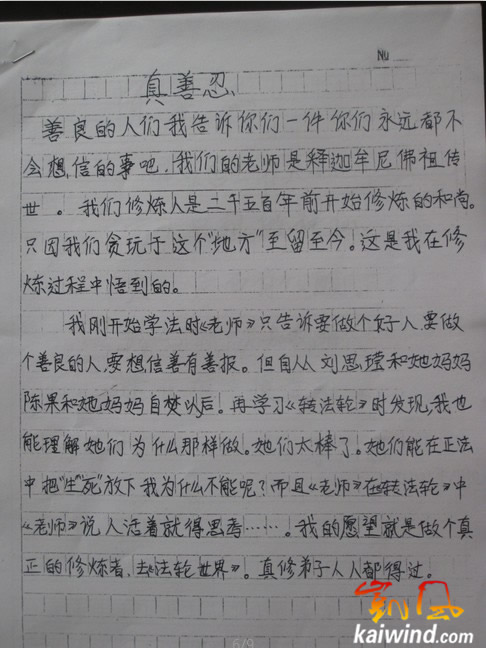 NU
真善忍
善良的人们我告诉你们一件你们永远都不
会想信的事吧.我们的老师是释迦牟尼佛祖传
世。我们修炼人是二千五百年前开始修炼的和尚。
只因我们贪玩于这个"地方"至留至今。这是我在修
炼过程中悟到的。
我刚开始学法时《老师》只告诉要做个好人.要做
个善良的人,要想信善有善报。但自从刘思瑩和她妈妈
陈果和她妈妈自焚以后。再学习《转法轮》时发现,我也
能理解她们为什么那样做。她们太棒了。她们能在正法
中把"生""死"放下我为什么不能呢?而且《老师》在《转法轮》中
《老师》说人活着就得思考……。我的愿望就是做个真
正的修炼者,去《法轮世界》。真修弟子人人都得过。
6/9
凯风
kaiwind.com